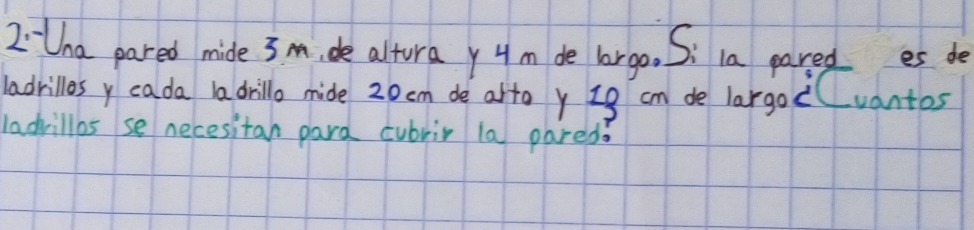 2.- Una pared mide 3 m. de altura y 4 m de largo. Si la pared es de
ladrillos y cada ladrillo mide 20 cm de alto y cm de largo ¿Cuantos
ladrillos se necesitan para cubrir la pared?